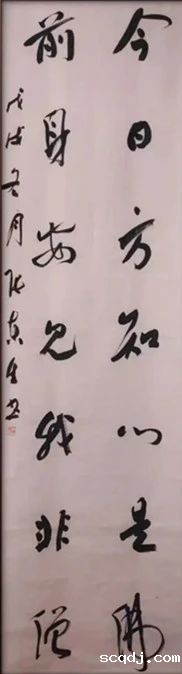 今日方知心是佛
前身安见我非僧
戊戌冬月张贞生书
scqdj.com